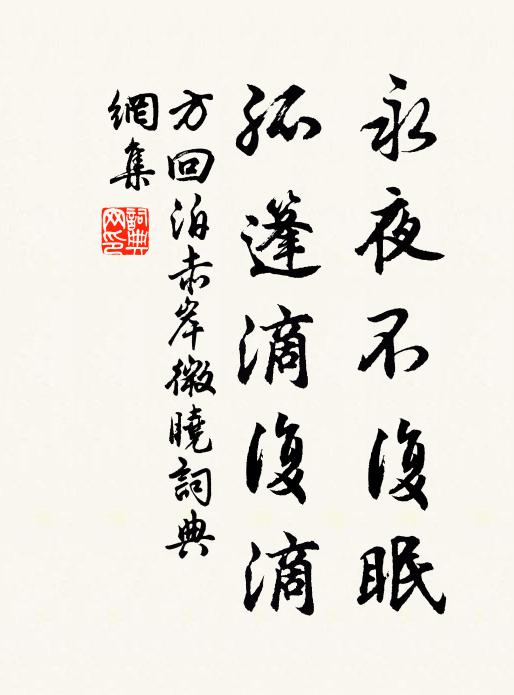 永夜不復眠
孤篷滴復滴
方回泊赤岸微曉詞典
網集
詞典網印